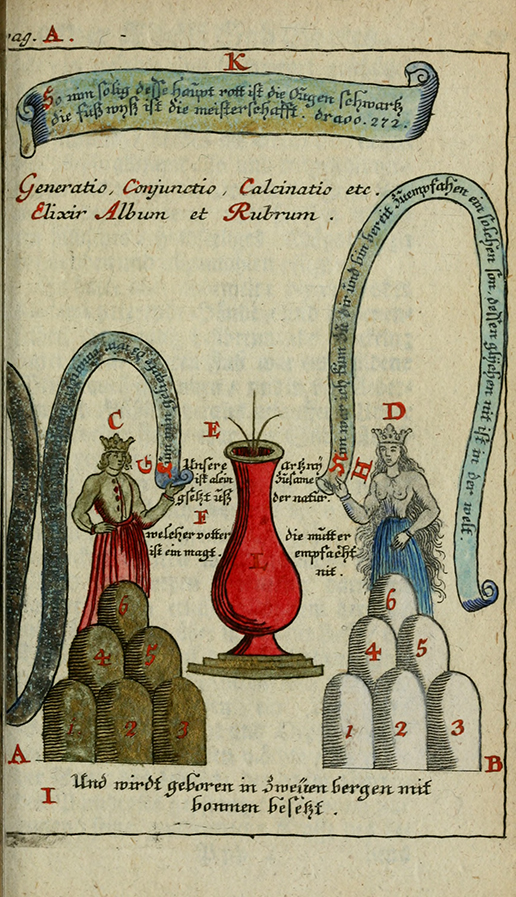 pag. A.
K
So nun solig desse haupt rott ist die Ougen schwartz
die füß wyß ist die meisterschafft. draoo. 272.
Generatio, Conjunctio, Calcinatio etc.
Elixir Album et Rubrum.
C
G
E
Unsere artzny
ist alein züsame
gsetzt uß der natur.
F
welcher votter die mütter
ist ein magt. empfacht
nit.
L
D
H
Nun wer ich kum zu dir und bin bereit zuempfahen ein solchen son, dessen glychen nit ist in der welt.
6
4 5
1 2 3
6
4 5
1 2 3
A
B
I
Und wirdt geboren in Zweiien bergen mit
bommen besetzt.